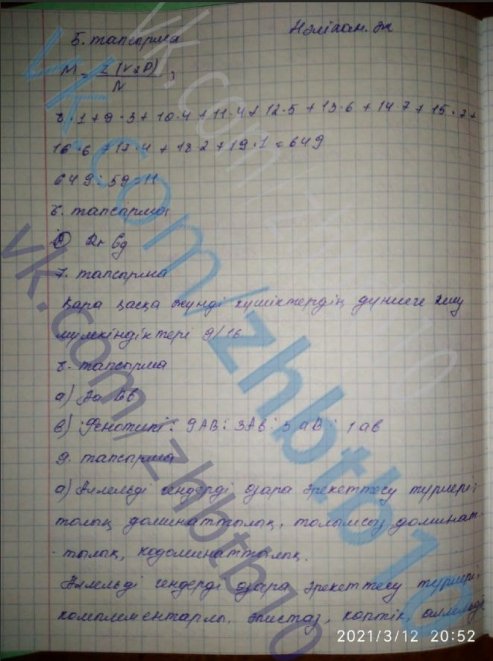 5. тапсырма
M = Σ(V×P)
N
8·1+9·3+10·4+11·4+12·5+13·6+14·7+15·7+
16·6+17·4+18·2+19·1=649
649:59=11
6. тапсырма
7. тапсырма
Қара қасқа жүнді күшіктердің дүниеге келу
мүмкіндіктері 9/16
8. тапсырма
а) Аа Bb
в) Фенотипі: 9АВ: 3Ab: 3 аВ: 1ab
9. тапсырма
а) Аллельді гендерді өзара әрекеттесу түрлері:
толық доминаттылық, толымсыз доминат-
тылық, кодоминаттылық.
Аллельді гендерді өзара әрекеттесу түрлері:
комплементарлы, эпистаз, көптік,
vk.com/zhbtb10
vk.com/zhbtb10
vk.com/zhbtb10
2021/3/12 20:52